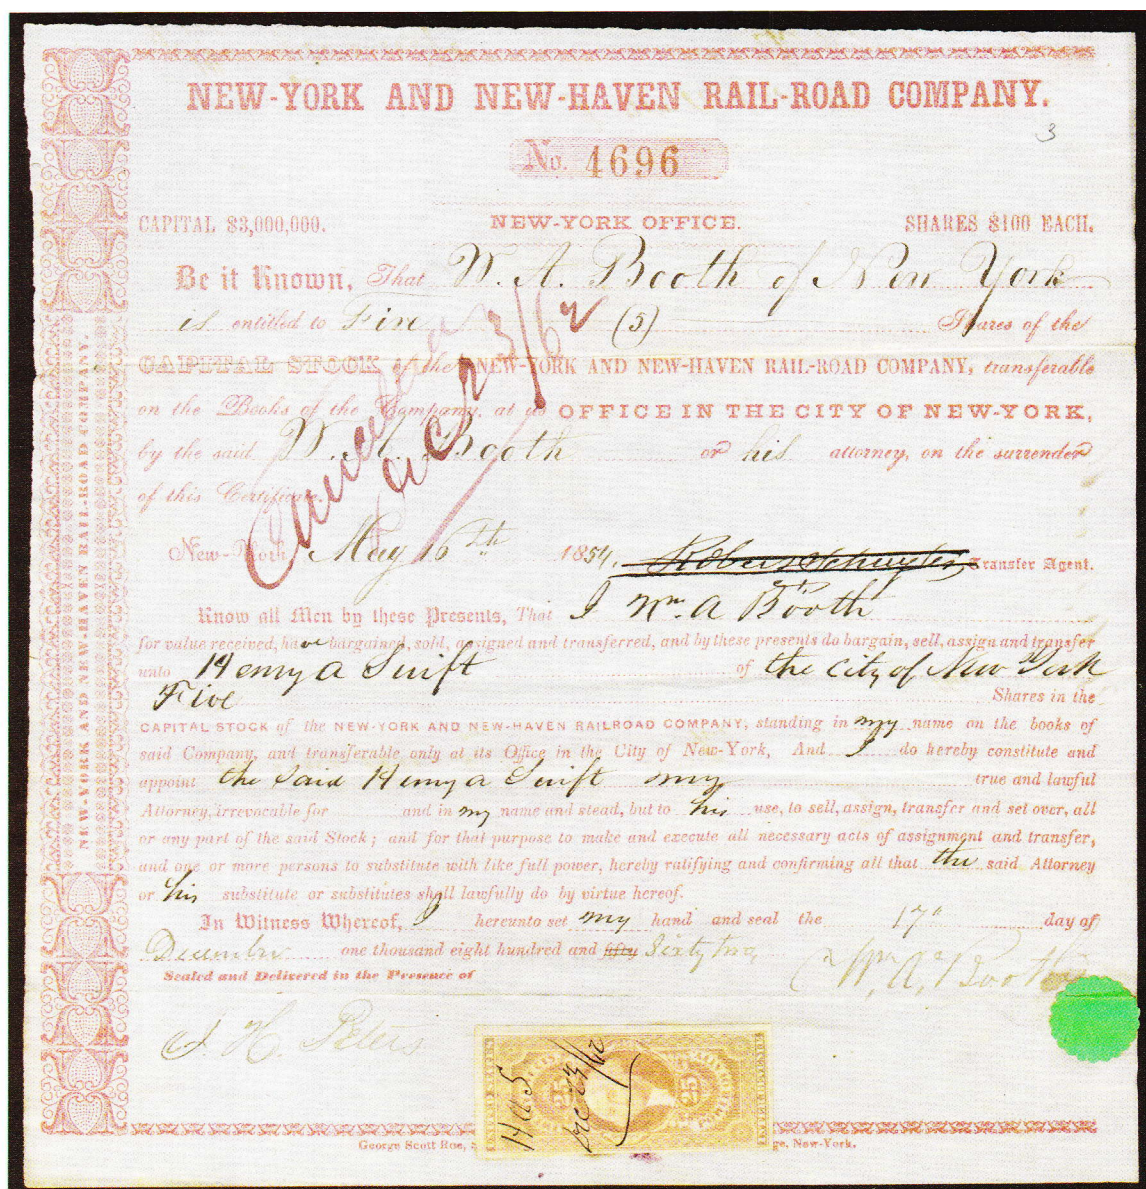 NEW-YORK AND NEW-HAVEN RAIL-ROAD COMPANY.
3
No. 4696
CAPITAL $3,000,000. NEW-YORK OFFICE. SHARES $100 EACH.
Be it Known, That W. A. Booth of New York
is entitled to Five (5) Shares of the
CAPITAL STOCK of the NEW-YORK AND NEW-HAVEN RAIL-ROAD COMPANY, transferable
on the Books of the Company, at its OFFICE IN THE CITY OF NEW-YORK,
by the said W. A. Booth or his attorney, on the surrender
of this Certificate.
Cancelled
Dec 23/62
New-York, May 16th 1854. Robert Schuyler Transfer Agent.
Know all Men by these Presents, That I Wm. A Booth
for value received, have bargained, sold, assigned and transferred, and by these presents do bargain, sell, assign and transfer
unto Henry A Swift of the City of New York
Five Shares in the
CAPITAL STOCK of the NEW-YORK AND NEW-HAVEN RAILROAD COMPANY, standing in my name on the books of
said Company, and transferable only at its Office in the City of New-York, And I do hereby constitute and
appoint the said Henry A Swift my true and lawful
Attorney, irrevocable for and in my name and stead, but to his use, to sell, assign, transfer and set over, all
or any part of the said Stock; and for that purpose to make and execute all necessary acts of assignment and transfer,
and one or more persons to substitute with like full power, hereby ratifying and confirming all that the said Attorney
or his substitute or substitutes shall lawfully do by virtue hereof.
In Witness Whereof, I hereunto set my hand and seal the 17" day of
December one thousand eight hundred and fifty Sixty two
Sealed and Delivered in the Presence of
Wm. A. Booth
J. H. Peters
25 25
H A S
Dec 23/62
George Scott Roe, New-York.
NEW-YORK AND NEW-HAVEN RAIL-ROAD COMPANY.